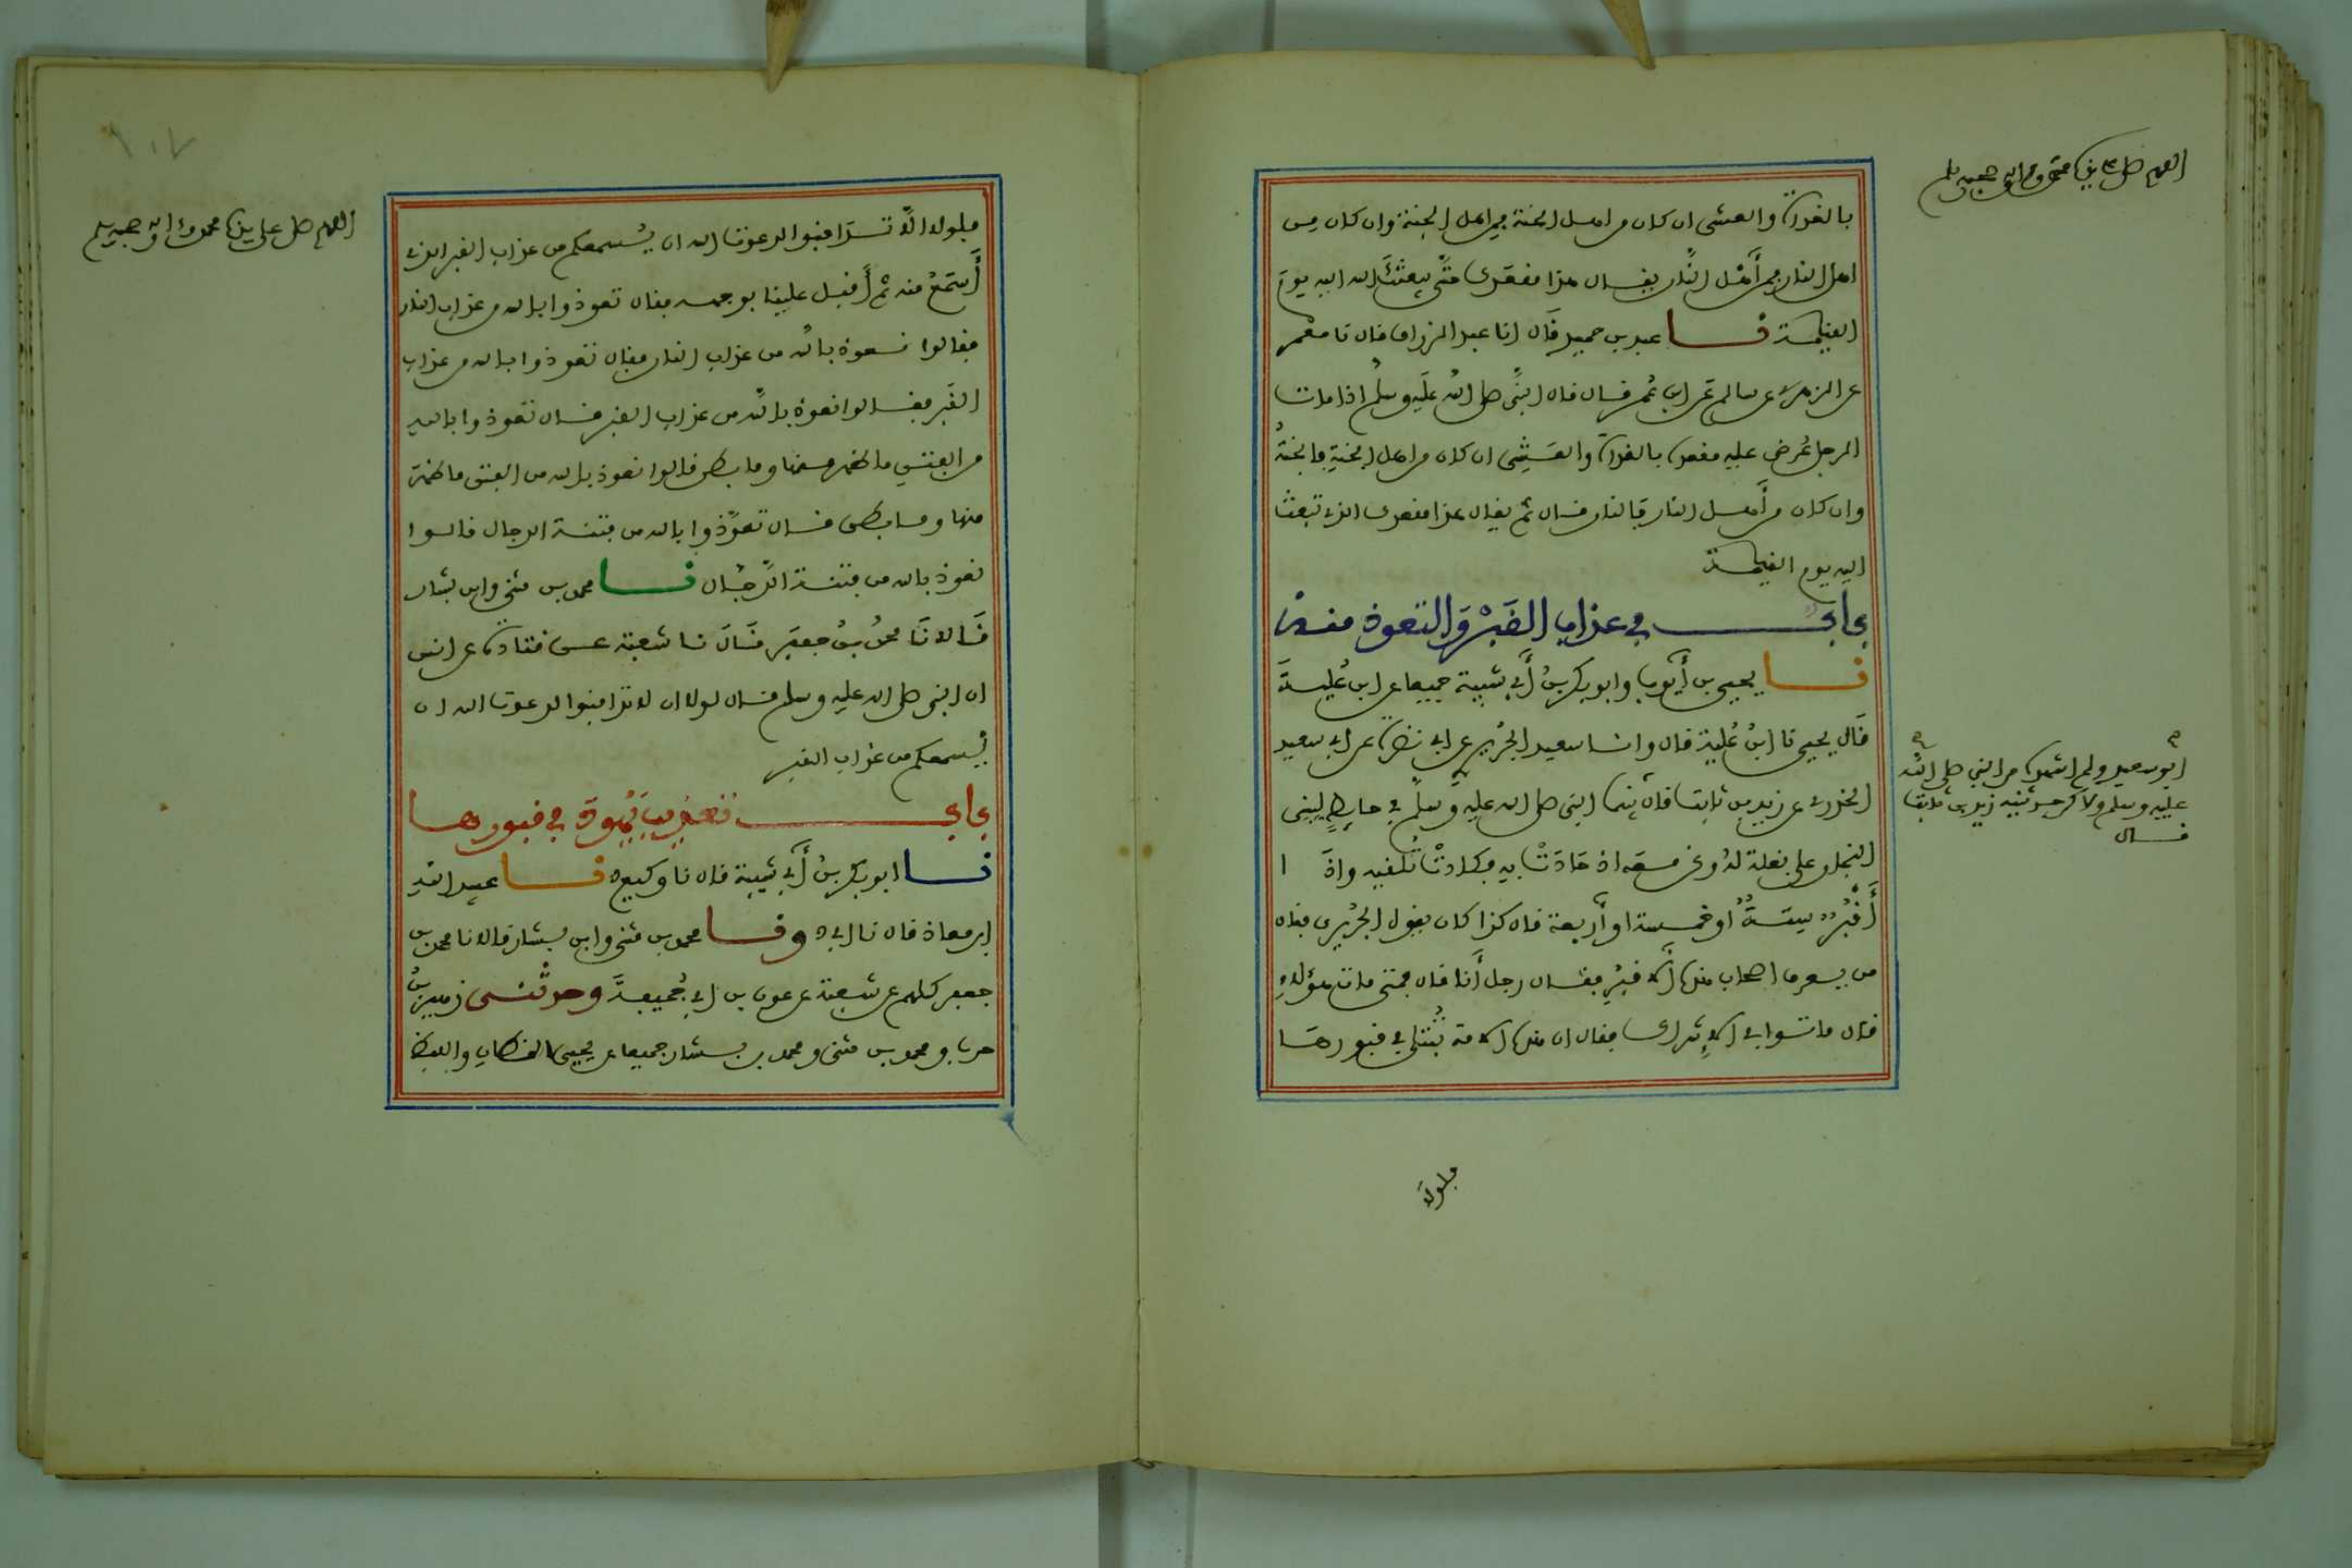 اللهم صل على سيدنا محمد وءاله وصحبه وسلم
بالغداة والعشي ان كان من اهل الجنة فمن اهل الجنة وان كان من
اهل النار فمن أهْل النَّار يقال هذا مقعدك حتَّى يبعثكَ الله اليه يومَ
القيامة نا عبد بن حميد قَال انا عبد الرزاق قال نا معْمر
عن الزهري عن سالم عَن ابن عُمر قال قال النبيُّ صلى اللهُ عليه وسلمُ اذا مات
الرجل عُرض عليه مقعده بالغداة والعَشِيِّ ان كان من اهل الجنةِ فالجنةُ
وان كان من أهل النار فالنار قال ثم يقال هذا مقعدك الذي تبعث
اليه يوم القيامة
بابٌ في عذاب القَبْر وَالتعوذ منه
نا يحيى بن أيُّوب وابو بكر بنُ أبي شيبة جميعا عن ابن عُليَّة
قَال يحيى نا ابنُ عُلية قال وانا سعيد الجُريْري عن ابي نضرة عن ابي سعيد
الخدري عن زيد بن ثابت قال بينما النبي صلى الله عليه وسلم في حايطٍ لبني
النجار على بغلة لهُ ونحن معَه اذ حَادَتْ به فكادتْ تُلْقيه واذَا
أقْبُرٌ ستةٌ أو خمسة او أربعة قال كذا كان يقول الجُرَيْري فقال
من يعرف اصحاب هذه الاقبُرِ فقال رجل أنا قال فمتى مات هؤلاءِ
قال ماتوا في الاِشراك فقال ان هذه الامة تُبْتَلى في قبورها
ابو سعيد ولم اشهده من النبي صلى الله
عليه وسلم ولاكن حدثنيه زيد بن ثابت
قال
فلولا
اللهم صل على سيدنا محمد وءاله وصحبه وسلم
١٠٧
فلولا الَّا تَدَافنوا لدعوت الله ان يُسمعكم من عذاب القبر الذي
أَسْمَعُ منه ثم أقبل علينا بوجهه فقال تعوذوا بالله من عذاب النار
فقالوا نعوذ بالله من عذاب النار فقال تعوذوا بالله من عذاب
القَبر فقالوا نعوذ باللَّه من عذاب القبر قال تعوذوا بالله
من الفتن ما ظهر منها وما بطن قالوا نعوذ بالله من الفتن ما ظهر
منها وما بطن قال تعوَّذوا بالله من فتنة الدجال قالوا
نعوذ بالله من فتنة الدَّجَّال نا محمد بن مثنى وابن بشار
قَالا نَا محمدُ بنُ جعفَر قَالَ نا شعبة عن قتادة عن انس
ان النبي صلى الله عليه وسلم قال لولا ان لا تدافنوا لدعوت الله ان
يُسمعكم من عذاب القبر
باب تعذيب يَهُودَ في قبورها
نا ابو بكر بنُ أبي شيبة قال نا وكيع ه نا عبيد اللهِ
ابن معاذ قال نا ابي ه ونا محمد بن مثنى وابن بشار قالا نا محمد بن
جعفر كلهم عن شعبة عن عون بن ابي جُحيفةَ وحدثني زهير بنُ
حرب ومحمد بن مثنى ومحمد بن بشار جميعا عن يحيى القطان واللفظ